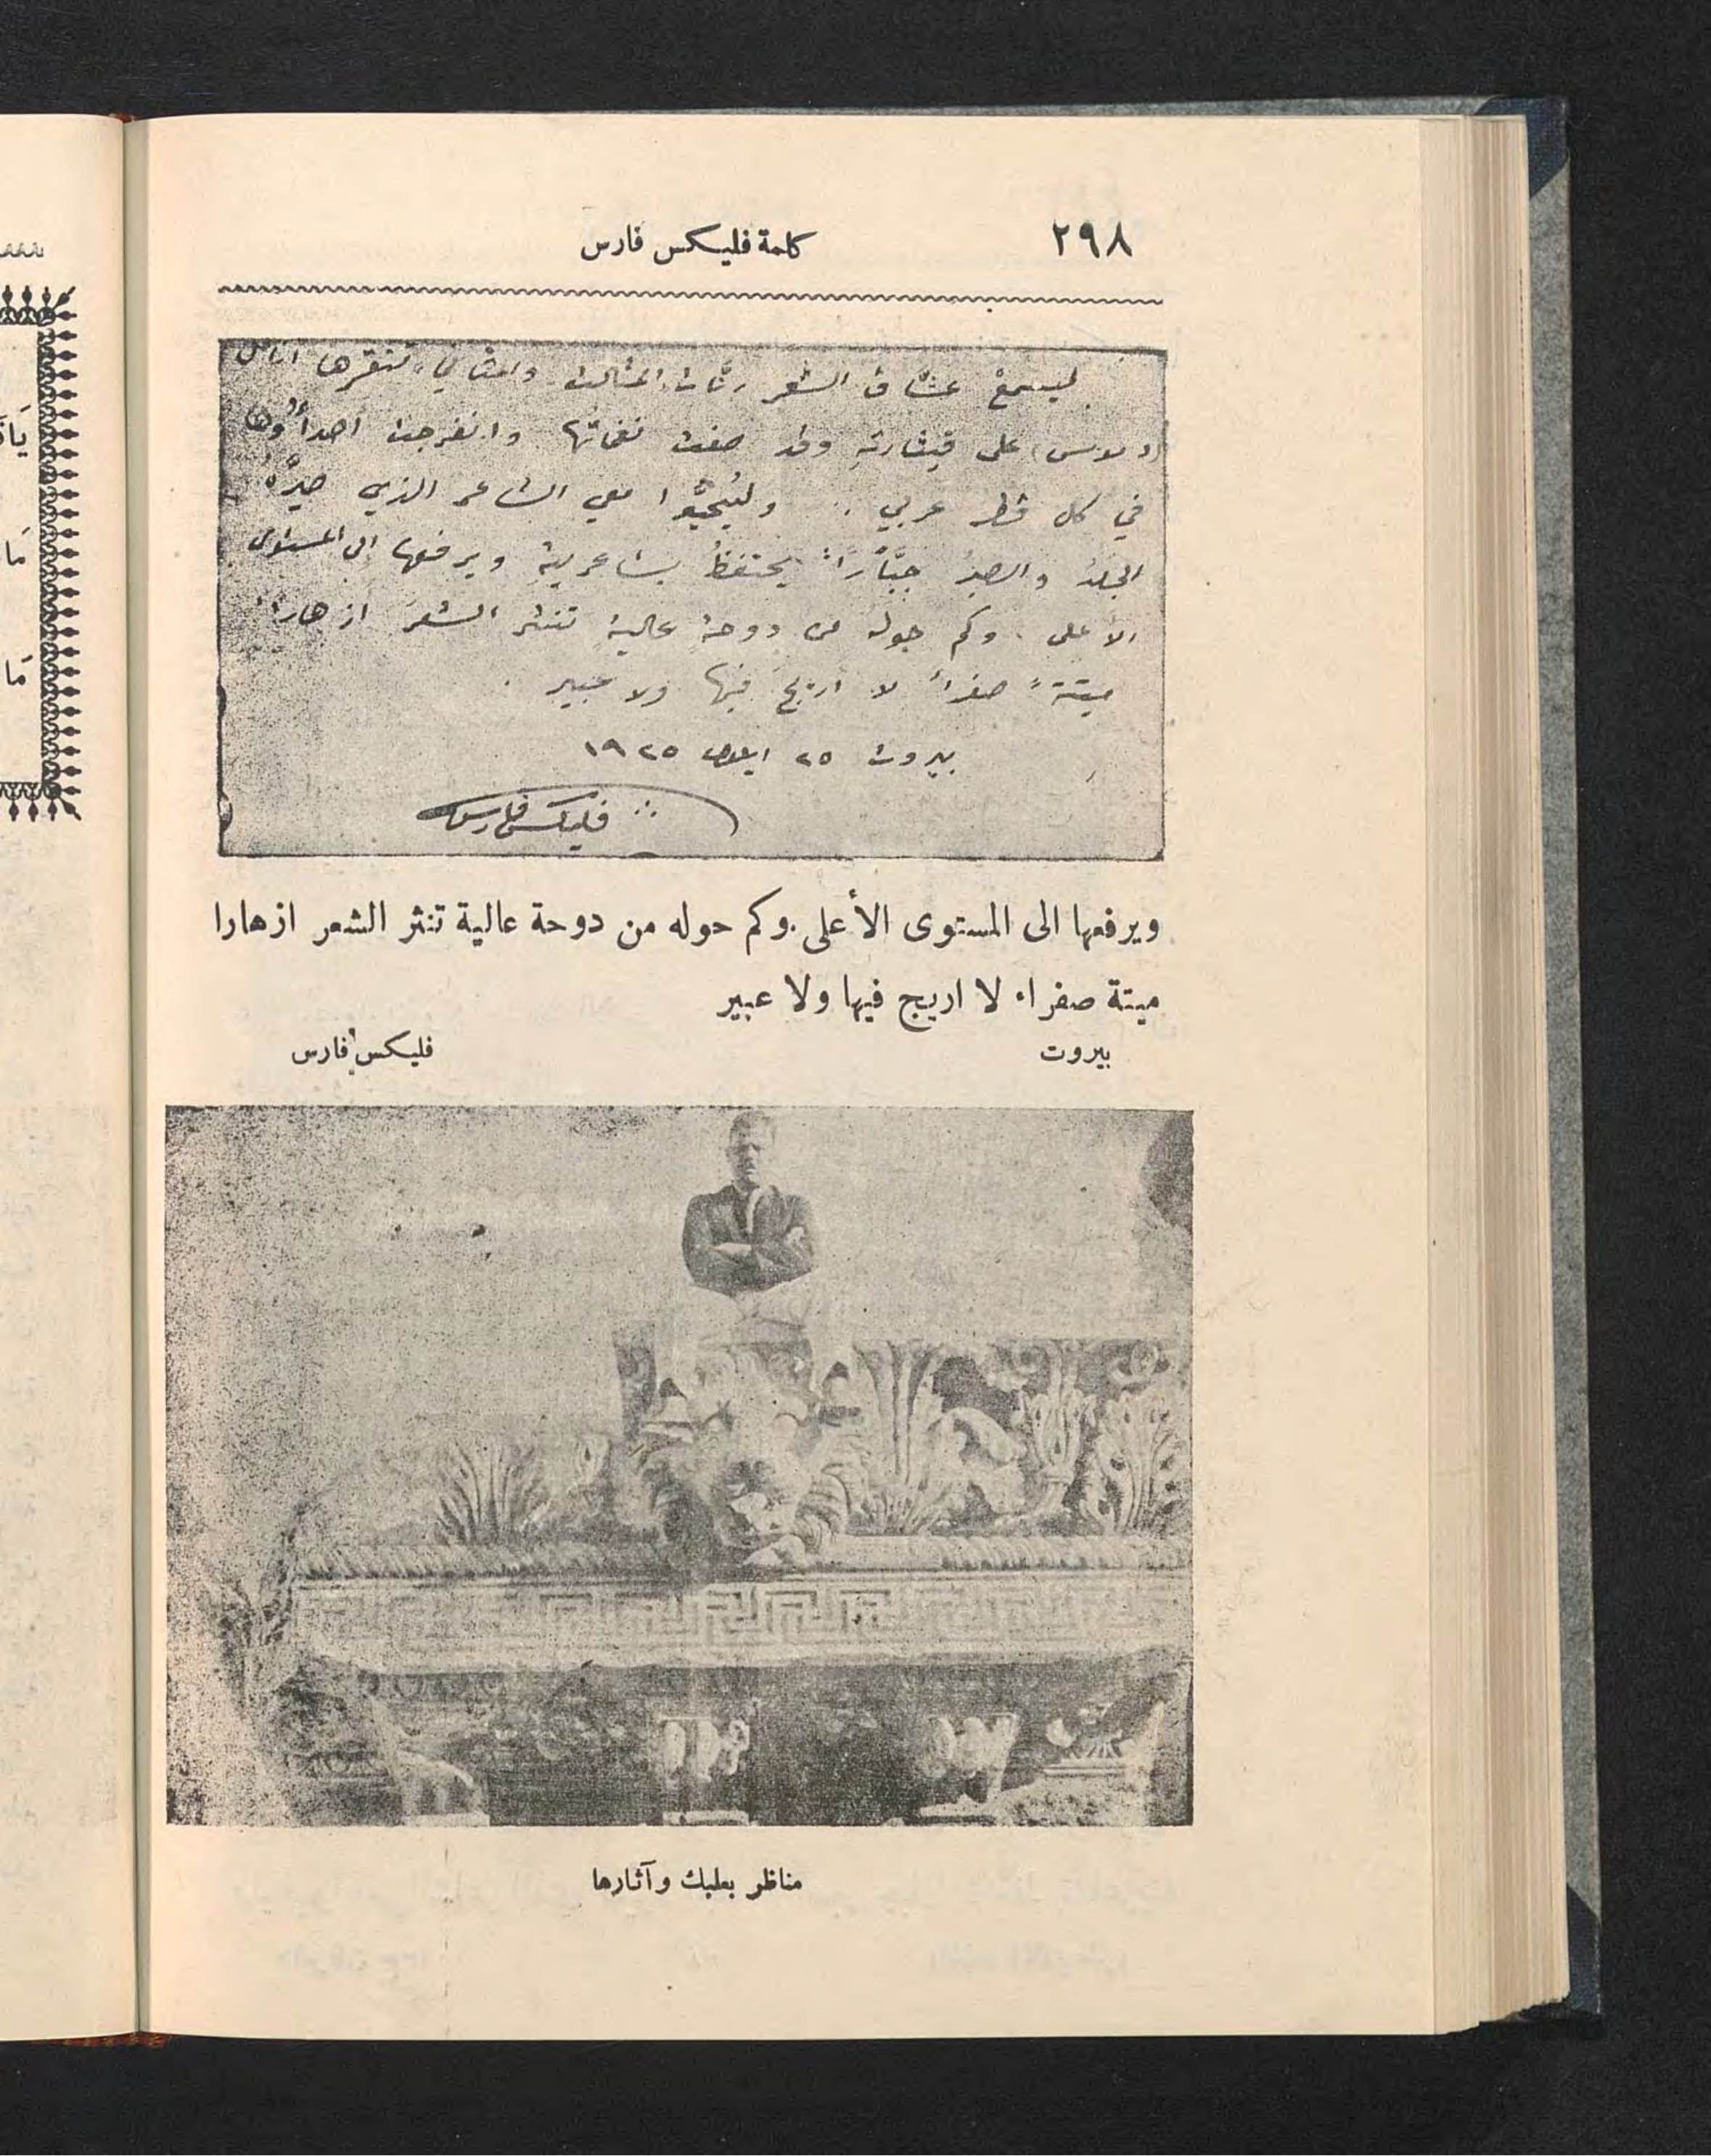 ٢٩٨
كلمة فليكس فارس
ليسمعْ عشّاق الشعر رنّات المثالث والمثاني تنقرها انامل
على قيثارته وقد صفت نغماتُها وانفرجت أصداؤُها
في كل قطر عربي .. وليُحيّوا معي الشاعر الذي صيَّرهُ
الجلدُ والصبرُ جبَّارًا يحتفظُ بشاعريتهِ ويرفعها الى المستوى
الأعلى . وكم حوله من دوحةٍ عاليةٍ تنثر الشعرَ ازهاراً
ميتةً صفراءَ لا اريجَ فيها ولا عبير .
بيروت ٢٥ ايلول ١٩٢٥
فليكس فارس
ويرفعها الى المستوى الأعلى . وكم حوله من دوحة عالية تنثر الشعر ازهارا
ميتة صفراء لا اريج فيها ولا عبير
بيروت
فليكس فارس
مناظر بعلبك وآثارها